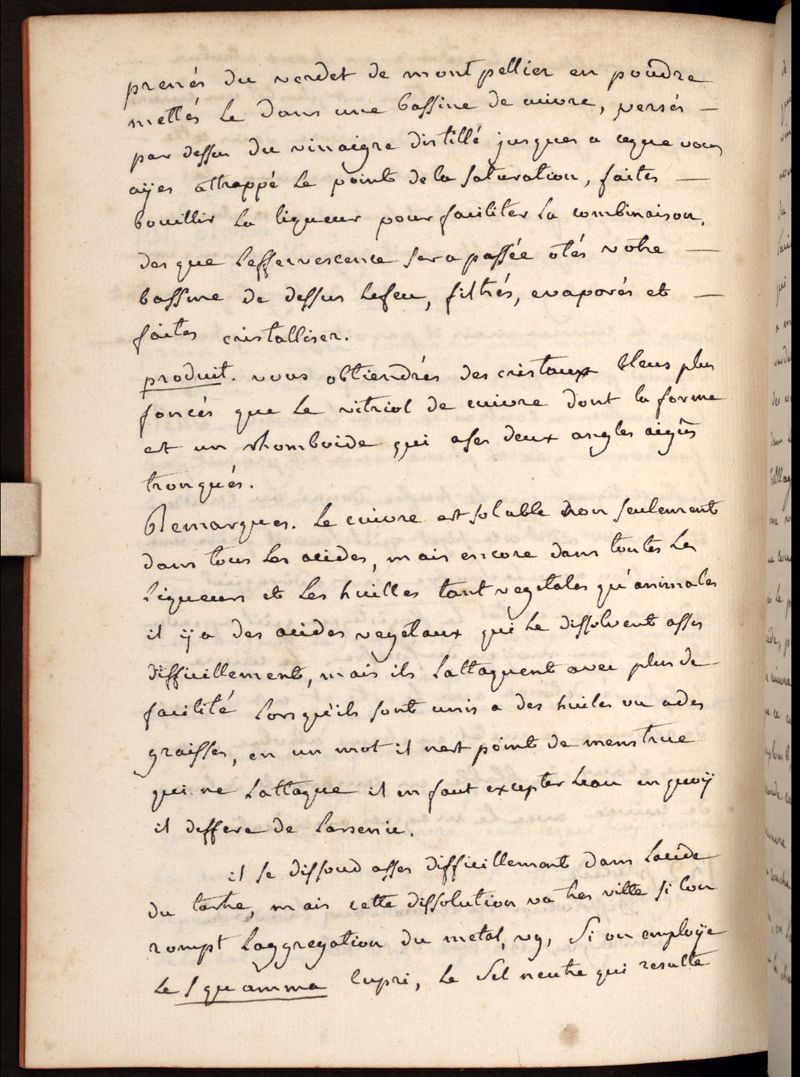 prenés du verdet de montpellier en poudre
mettés le dans une bassine de cuivre, versés —
par dessus du vinaigre distillé jusques a ceque vous
aÿes attrappé le point de la saturation, faites —
bouillir la liqueur pour faciliter la combinaison.
des que leffervescence sera passée otés votre —
bassine de dessus lefeu, filtrés, evaporés et —
faites cristalliser.
produit. vous obtiendrés des cristaux bleus plus
foncés que le vitriol de cuivre dont la forme
est un rhomboide qui ases deux angles aigus
tronqués.
Remarques. Le cuivre est soluble non seulement
dans tous les acides, mais encore dans toutes les
liqueurs et les huilles tant vegetales qu'animales
il ÿ a des acides vegetaux qui le dissolvent asses
difficillement, mais ils lattaquent avec plus de
facilité lorsqu'ils sont unis a des huiles ou ades
graisses, en un mot il nest point de menstrue
qui ne lattaque il en faut excepter leau en quoÿ
il differe de larsenic.
il se dissoud asses difficillement dans lacide
du tartre, mais cette dissolution va tres ville si lon
rompt laggregation du metal, vg, si on emploÿe
le squamma cupri, le sel neutre qui resulte